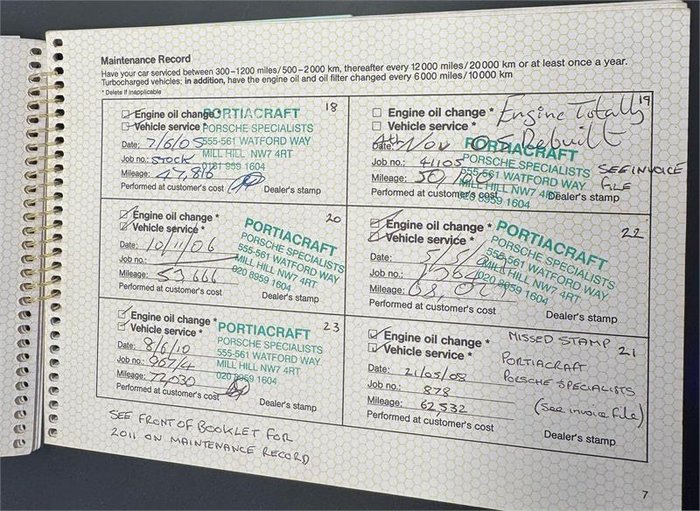 Maintenance Record
Have your car serviced between 300-1200 miles/500-2000 km, thereafter every 12000 miles/20000 km or at least once a year.
Turbocharged vehicles: in addition, have the engine oil and oil filter changed every 6000 miles/10000 km
* Delete if inapplicable
18
Engine oil change *
Vehicle service *
Date: 7/6/05
Job no.: STOCK
Mileage: 47,816
Performed at customer's cost
Dealer's stamp
PORTIACRAFT
PORSCHE SPECIALISTS
555-561 WATFORD WAY
MILL HILL NW7 4RT
0181 959 1604
19
Engine oil change *
Vehicle service *
Engine Totally
Rebuilt
Date: Nov 05
Job no.: 41105
Mileage: 50,100
Performed at customer's cost
Dealer's stamp
PORTIACRAFT
PORSCHE SPECIALISTS
555-561 WATFORD WAY
MILL HILL NW7 4RT
020 8959 1604
SEE INVOICE
FILE
20
Engine oil change *
Vehicle service *
Date: 10/11/06
Job no.:
Mileage: 53,666
Performed at customer's cost
Dealer's stamp
PORTIACRAFT
PORSCHE SPECIALISTS
555-561 WATFORD WAY
MILL HILL NW7 4RT
020 8959 1604
22
Engine oil change *
Vehicle service *
Date:
Job no.:
Mileage:
Performed at customer's cost
Dealer's stamp
PORTIACRAFT
PORSCHE SPECIALISTS
555-561 WATFORD WAY
MILL HILL NW7 4RT
020 8959 1604
23
Engine oil change *
Vehicle service *
Date: 8/6/10
Job no.: 967/4
Mileage: 72,030
Performed at customer's cost
Dealer's stamp
PORTIACRAFT
PORSCHE SPECIALISTS
555-561 WATFORD WAY
MILL HILL NW7 4RT
020 8959 1604
21
Engine oil change *
Vehicle service *
Date: 21/05/08
Job no.: 878
Mileage: 62,532
Performed at customer's cost
Dealer's stamp
MISSED STAMP
PORTIACRAFT
PORSCHE SPECIALISTS
(See invoice file)
SEE FRONT OF BOOKLET FOR
2011 ON MAINTENANCE RECORD
7